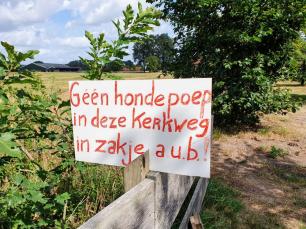 Géén hondepoep
in deze Kerkweg
in zakje a.u.b.!